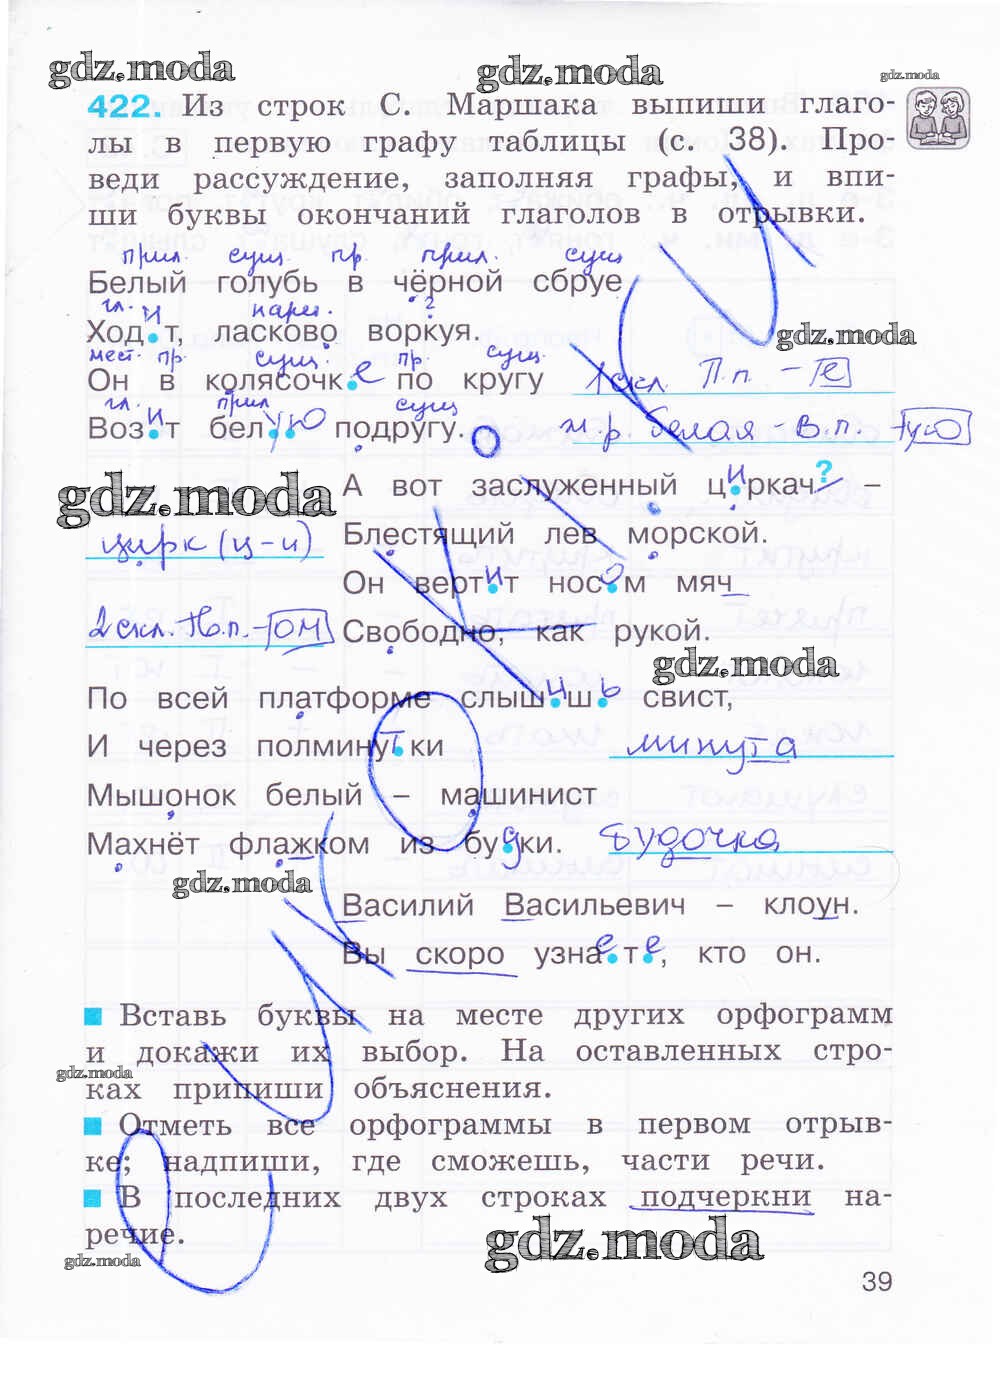 gdz.moda gdz.moda gdz.moda
422. Из строк С. Маршака выпиши глаго-
лы в первую графу таблицы (с. 38). Про-
веди рассуждение, заполняя графы, и впи-
ши буквы окончаний глаголов в отрывки.
прил. сущ. пр. прил. сущ
Белый голубь в чёрной сбруе
гл. нареч. ?
Ходит, ласково воркуя.
gdz.moda
мест. пр. сущ. пр. сущ.
Он в колясочке по кругу 1 скл. П.п. – е
гл. прил сущ
Возит белую подругу. ж.р. белая – В.п. – ую
gdz.moda
А вот заслуженный циркач –
?
цирк (ц-и) Блестящий лев морской.
Он вертит носом мяч
2 скл. Т.п. – ом Свободно, как рукой.
gdz.moda
По всей платформе слышишь свист,
И через полминутки минута
Мышонок белый – машинист
Махнёт флажком из будки. будочка
gdz.moda
Василий Васильевич – клоун.
Вы скоро узнаете, кто он.
Вставь буквы на месте других орфограмм
и докажи их выбор. На оставленных стро-
gdz.moda
ках припиши объяснения.
Отметь все орфограммы в первом отрыв-
ке; надпиши, где сможешь, части речи.
В последних двух строках подчеркни на-
речие.
gdz.moda gdz.moda
39